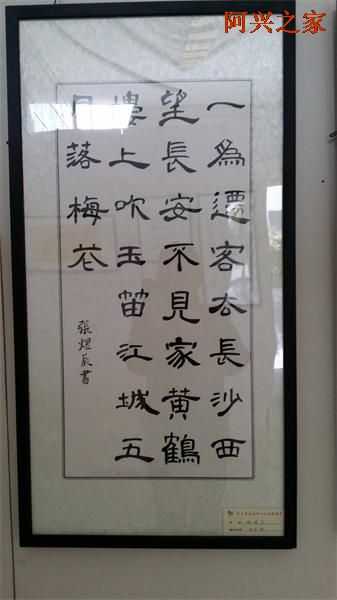 阿兴之家
一為遷客去長沙西
望長安不見家黄鶴
樓上吹玉笛江城五
月落梅花
張煜辰書